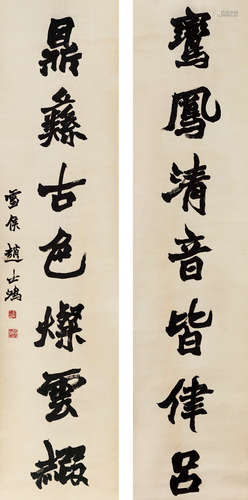 鸞鳳清音皆律呂
鼎彝古色燦雲霞
雪侯趙士鴻